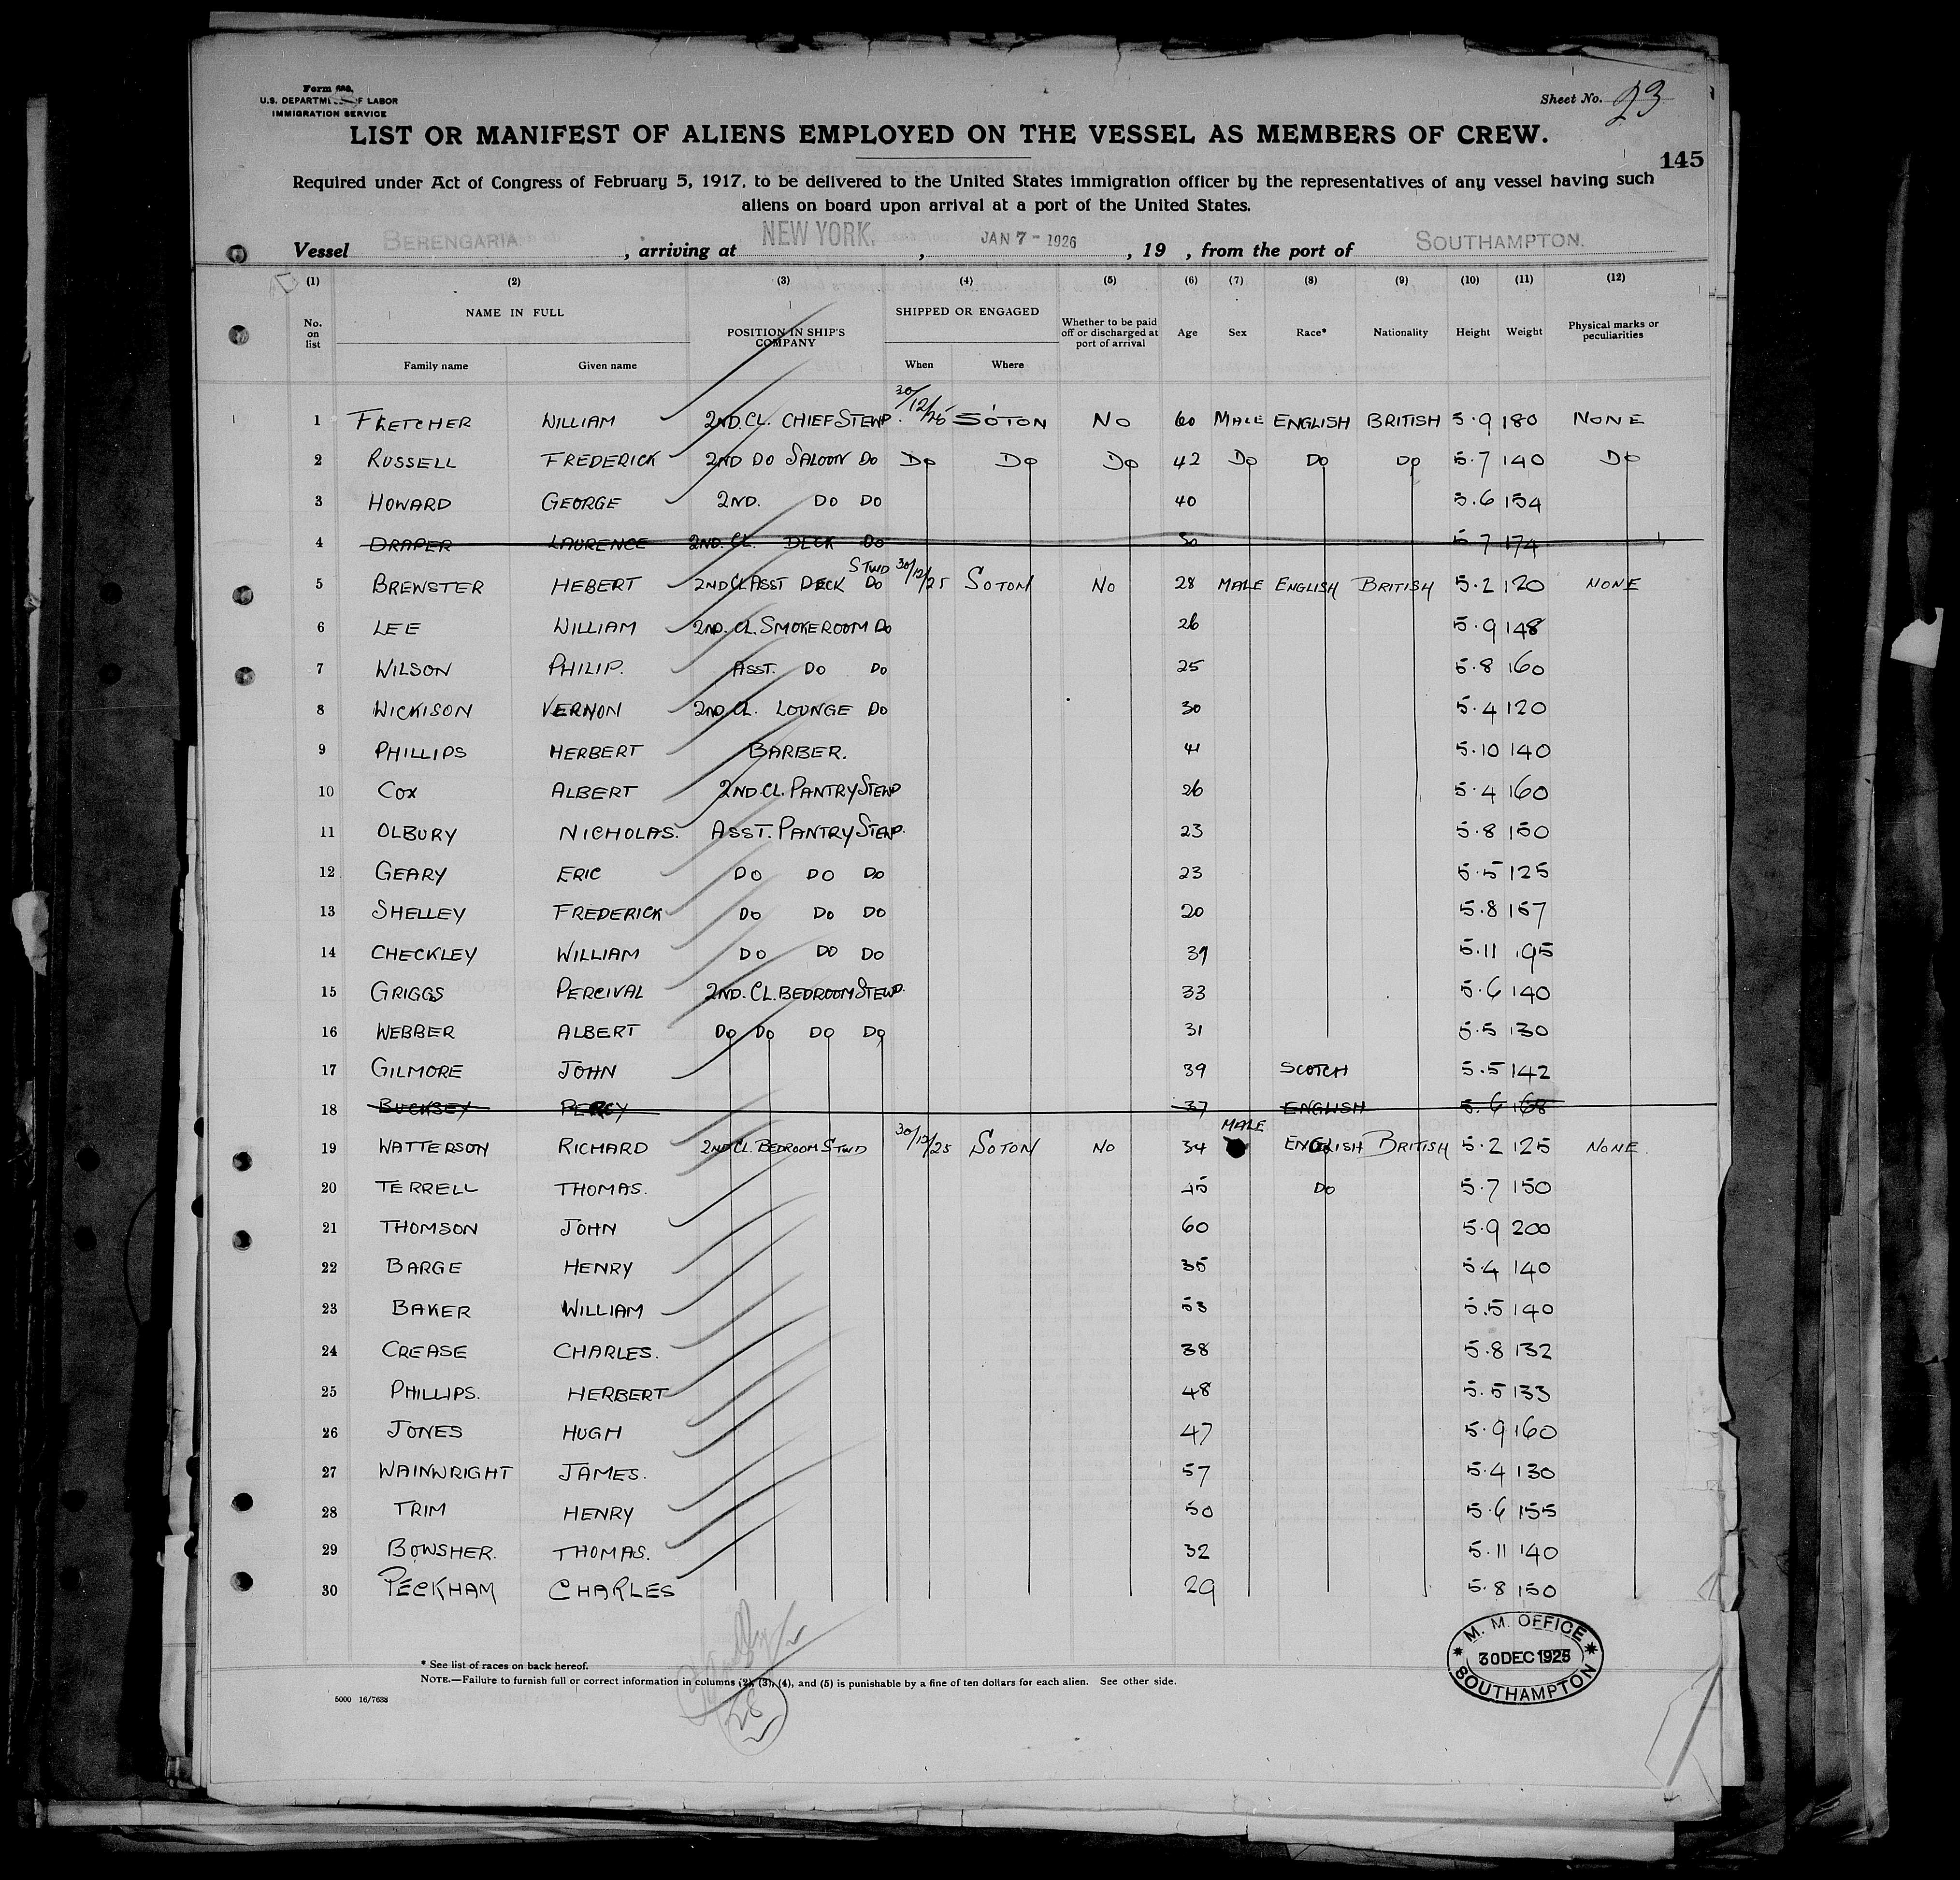 Form
U.S. DEPARTMENT OF LABOR
IMMIGRATION SERVICE
Sheet No. 23
LIST OR MANIFEST OF ALIENS EMPLOYED ON THE VESSEL AS MEMBERS OF CREW.
145
Required under Act of Congress of February 5, 1917, to be delivered to the United States immigration officer by the representatives of any vessel having such
aliens on board upon arrival at a port of the United States.
Vessel BERENGARIA, arriving at NEW YORK. , JAN 7 - 1926 , 19 , from the port of SOUTHAMPTON.
(1) (2) (3) (4) (5) (6) (7) (8) (9) (10) (11) (12)
No. on list NAME IN FULL Family name Given name POSITION IN SHIP'S COMPANY SHIPPED OR ENGAGED When Where Whether to be paid off or discharged at port of arrival Age Sex Race* Nationality Height Weight Physical marks or peculiarities
1 FLETCHER WILLIAM 2ND. CL. CHIEF STEWD. 30/12/25 SOTON NO 60 MALE ENGLISH BRITISH 5.9 180 NONE
2 RUSSELL FREDERICK 2ND DO SALOON DO DO DO DO 42 DO DO DO 5.7 140 DO
3 HOWARD GEORGE 2ND. DO DO 40 5.6 154
4 DRAPER LAURENCE 2ND. CL. DECK DO 50 5.7 174
5 BREWSTER HEBERT 2ND CL ASST DECK DO STWD 30/12/25 SOTON NO 28 MALE ENGLISH BRITISH 5.2 120 NONE
6 LEE WILLIAM 2ND. CL. SMOKEROOM DO 26 5.9 148
7 WILSON PHILIP. ASST. DO DO 25 5.8 160
8 WICKISON VERNON 2ND CL. LOUNGE DO 30 5.4 120
9 PHILLIPS HERBERT BARBER. 41 5.10 140
10 COX ALBERT 2ND CL. PANTRY STEWD 26 5.4 160
11 OLBURY NICHOLAS. ASST. PANTRY STEWD. 23 5.8 150
12 GEARY ERIC DO DO DO 23 5.5 125
13 SHELLEY FREDERICK DO DO DO 20 5.8 157
14 CHECKLEY WILLIAM DO DO DO 39 5.11 195
15 GRIGGS PERCIVAL 2ND. CL. BEDROOM STEWD. 33 5.6 140
16 WEBBER ALBERT DO DO DO DO 31 5.5 130
17 GILMORE JOHN 39 SCOTCH 5.5 142
18 BUCKSEY PERCY 37 ENGLISH 5.6 168
19 WATTERSON RICHARD 2ND CL. BEDROOM STWD 30/12/25 SOTON NO 34 MALE ENGLISH BRITISH 5.2 125 NONE.
20 TERRELL THOMAS. 45 DO 5.7 150
21 THOMSON JOHN 60 5.9 200
22 BARGE HENRY 35 5.4 140
23 BAKER WILLIAM 53 5.5 140
24 CREASE CHARLES. 38 5.8 132
25 PHILLIPS. HERBERT 48 5.5 133
26 JONES HUGH 47 5.9 160
27 WAINWRIGHT JAMES. 57 5.4 130
28 TRIM HENRY 50 5.6 155
29 BOWSHER. THOMAS. 32 5.11 140
30 PECKHAM CHARLES 29 5.8 150
* See list of races on back hereof.
NOTE.—Failure to furnish full or correct information in columns (2), (3), (4), and (5) is punishable by a fine of ten dollars for each alien. See other side.
5000 16/7638
28
M. M. OFFICE
30 DEC 1925
SOUTHAMPTON